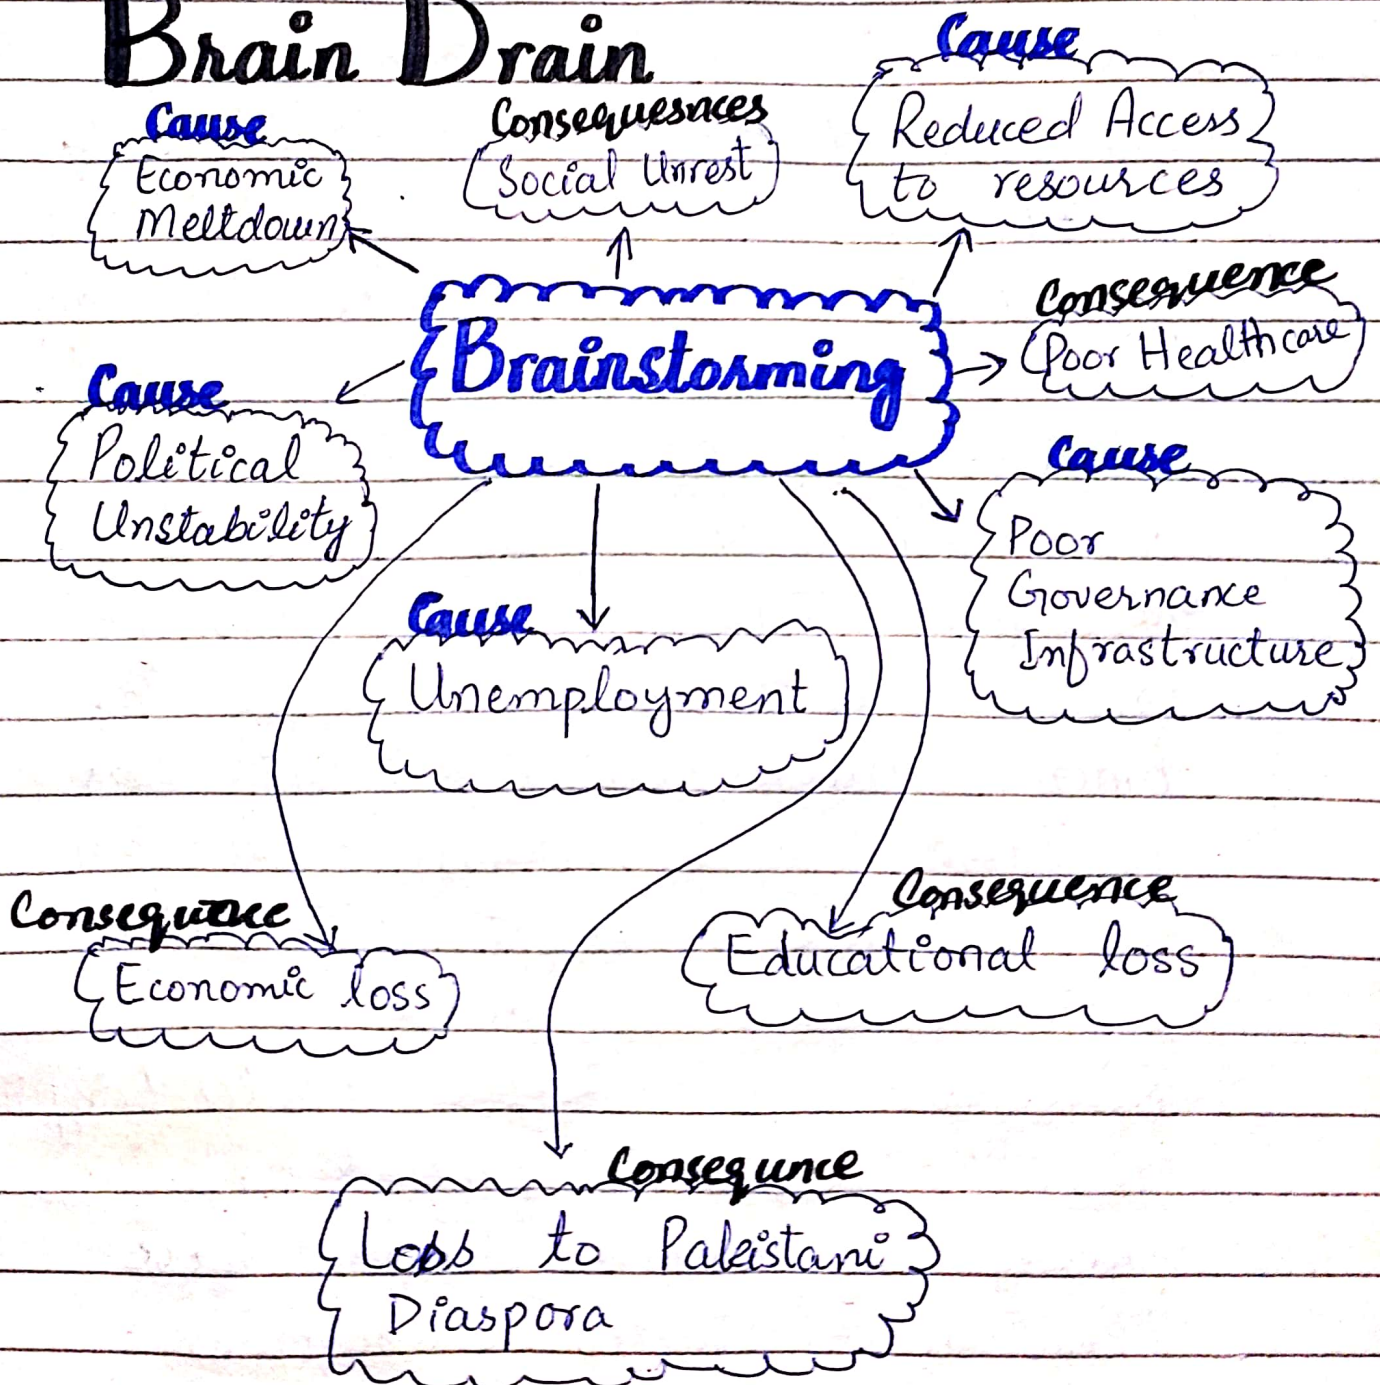 Brain Drain
Cause
Economic
Meltdown
Consequesnces
Social Unrest
Cause
Reduced Access
to resources
Brainstorming
Consequence
Poor Healthcare
Cause
Political
Unstability
Cause
Poor
Governance
Infrastructure
Cause
Unemployment
Consequence
Economic loss
Consequence
Educational loss
Consequnce
Loss to Pakistani
Diaspora